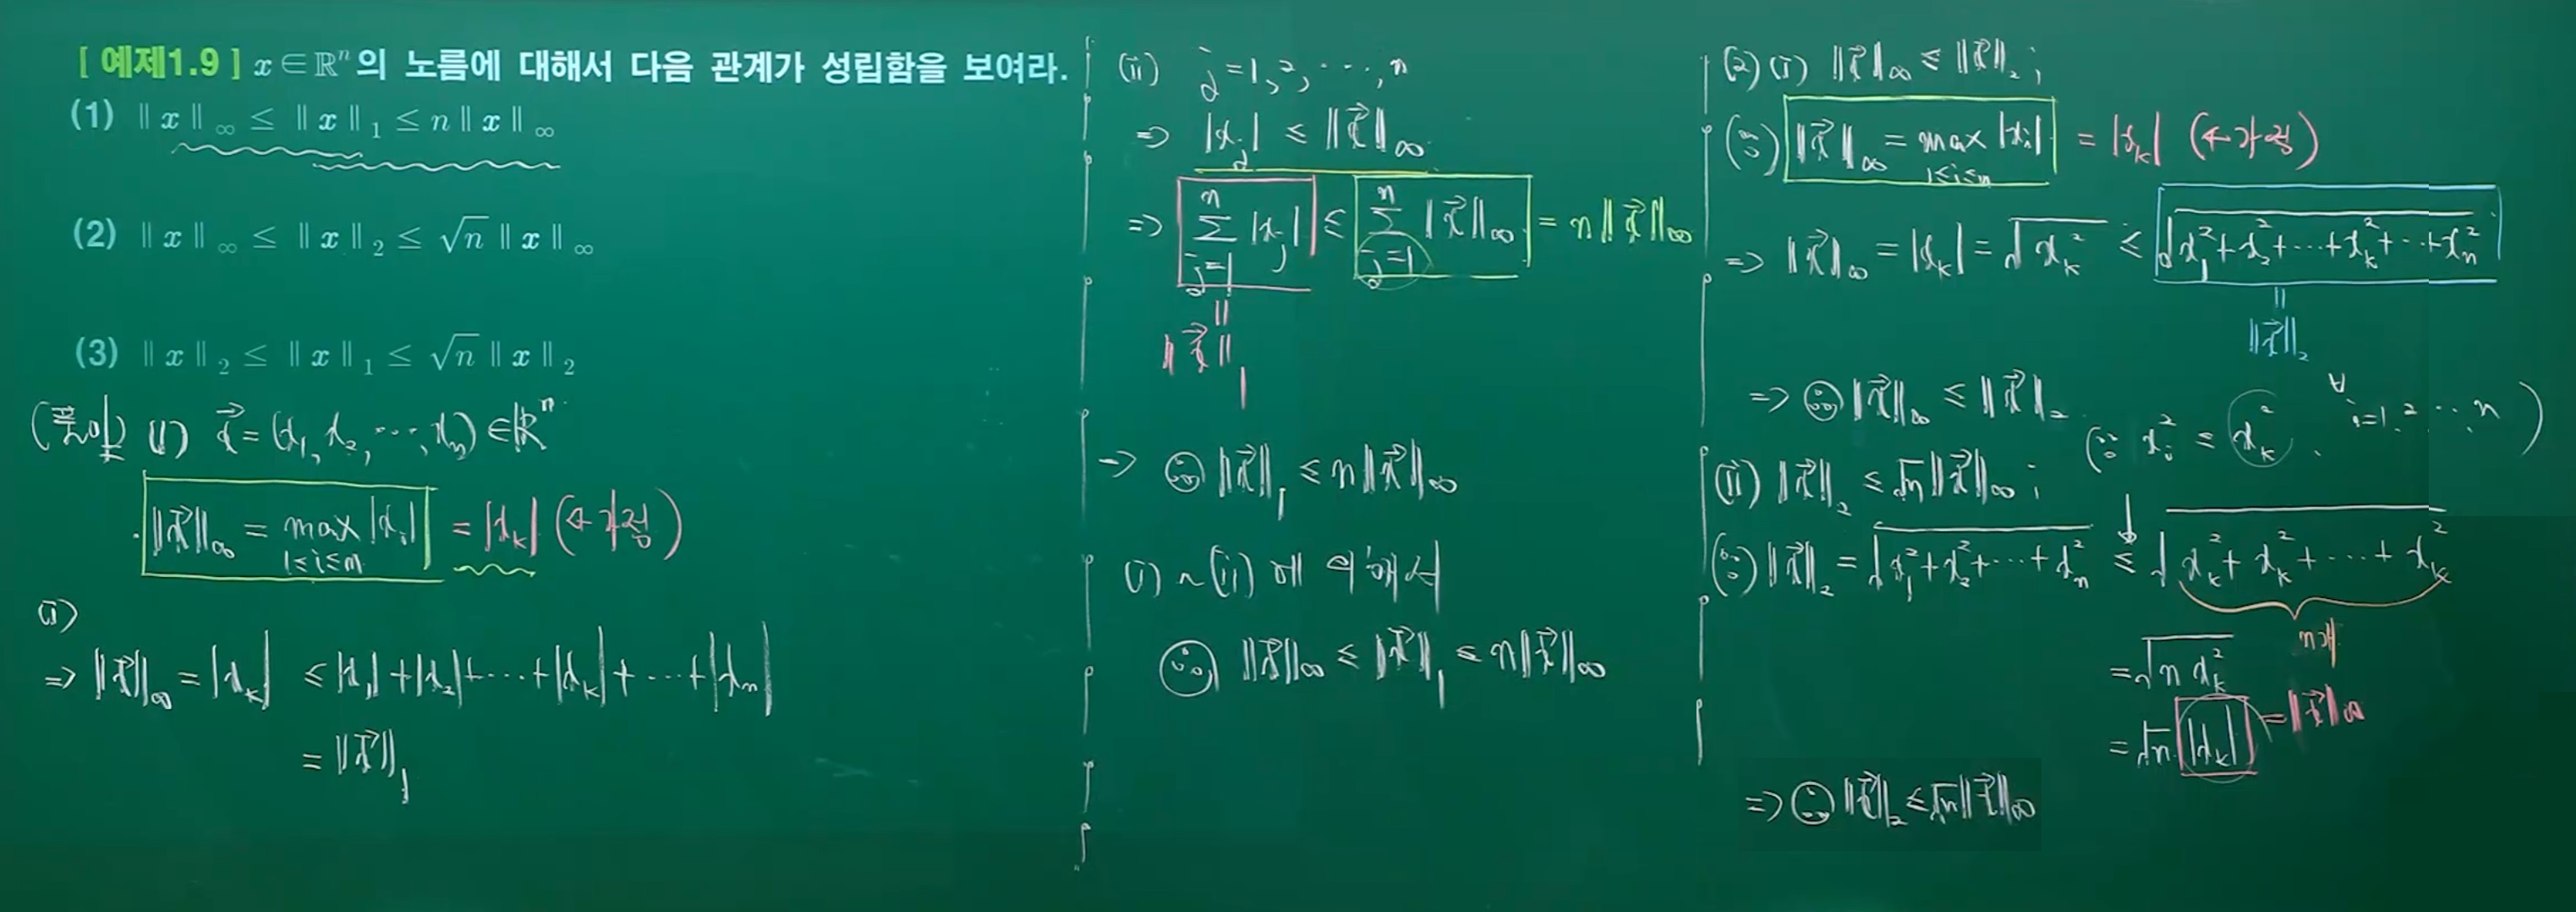 [ 예제1.9 ] x ∈ ℝⁿ의 노름에 대해서 다음 관계가 성립함을 보여라.
(1) ‖x‖∞ ≤ ‖x‖₁ ≤ n‖x‖∞
(2) ‖x‖∞ ≤ ‖x‖₂ ≤ √n ‖x‖∞
(3) ‖x‖₂ ≤ ‖x‖₁ ≤ √n ‖x‖₂
(풀이) (1) x⃗ = (x₁, x₂, ⋯, xₙ) ∈ ℝⁿ
‖x⃗‖∞ = max |xᵢ| = |xₖ| (←가정)
1≤i≤n
(i)
⇒ ‖x⃗‖∞ = |xₖ| ≤ |x₁| + |x₂| + ⋯ + |xₖ| + ⋯ + |xₙ|
= ‖x⃗‖₁
(ii) j = 1, 2, ⋯, n
⇒ |xⱼ| ≤ ‖x⃗‖∞
⇒ ∑ⁿⱼ₌₁ |xⱼ| ≤ ∑ⁿⱼ₌₁ ‖x⃗‖∞ = n‖x⃗‖∞
‖
‖x⃗‖₁
⇒ ∴ ‖x⃗‖₁ ≤ n‖x⃗‖∞
(i) ~ (ii) 에 의해서
∴ ‖x⃗‖∞ ≤ ‖x⃗‖₁ ≤ n‖x⃗‖∞
(2) (i) ‖x⃗‖∞ ≤ ‖x⃗‖₂ ;
(∵) ‖x⃗‖∞ = max |xᵢ| = |xₖ| (←가정)
1≤i≤n
⇒ ‖x⃗‖∞ = |xₖ| = √(xₖ²) ≤ √(x₁² + x₂² + ⋯ + xₖ² + ⋯ + xₙ²)
‖
‖x⃗‖₂
⇒ ∴ ‖x⃗‖∞ ≤ ‖x⃗‖₂
(∵ xᵢ² ≤ xₖ², ∀i = 1, 2, ⋯, n)
(ii) ‖x⃗‖₂ ≤ √n ‖x⃗‖∞ ;
(∵) ‖x⃗‖₂ = √(x₁² + x₂² + ⋯ + xₙ²) ≤ √(xₖ² + xₖ² + ⋯ + xₖ²)
n개
= √(n xₖ²)
= √n |xₖ| = ‖x⃗‖∞
⇒ ∴ ‖x⃗‖₂ ≤ √n ‖x⃗‖∞